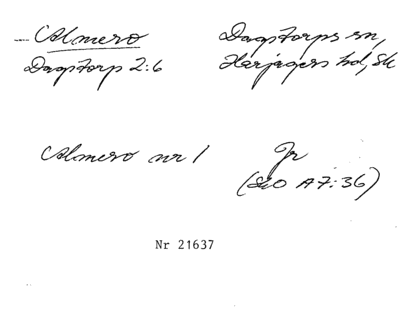 Almero
Dagstorp 2:6
Dagstorps sn,
Harjagers hd, Sk
Almero nr 1
Jr
(SkO A7:36)
Nr 21637